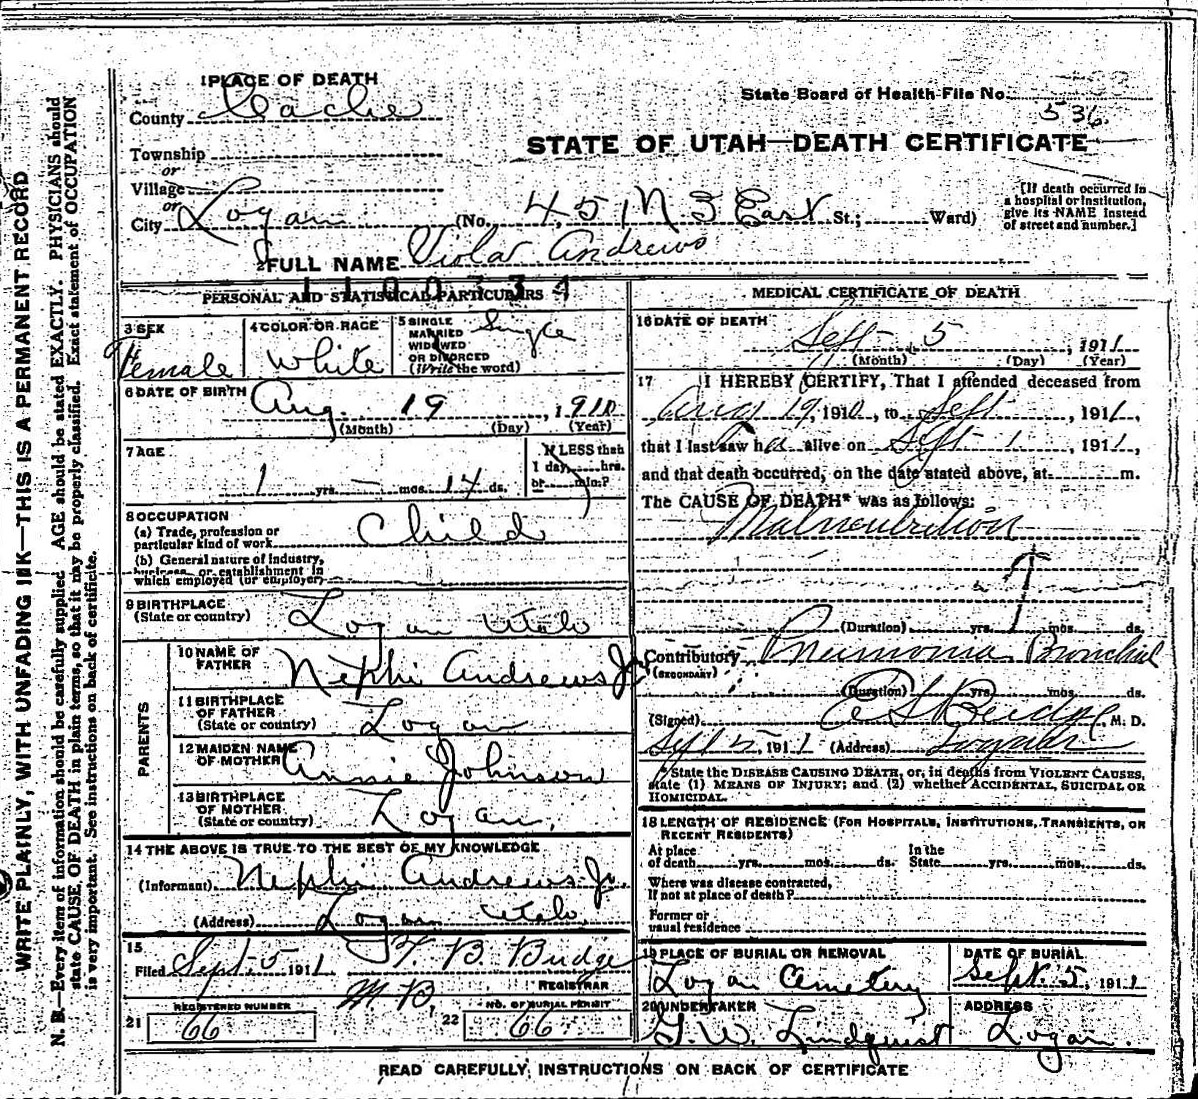 WRITE PLAINLY, WITH UNFADING INK—THIS IS A PERMANENT RECORD
N. B.—Every item of information should be carefully supplied. AGE should be stated EXACTLY. PHYSICIANS should
state CAUSE OF DEATH in plain terms, so that it may be properly classified. Exact statement of OCCUPATION
is very important. See instructions on back of certificate.
1 PLACE OF DEATH
County Cache
Township
or
Village
or
City Logan (No. 451 N 3 East St.; Ward)
State Board of Health File No.
536.
STATE OF UTAH—DEATH CERTIFICATE
[If death occurred in
a hospital or institution,
give its NAME instead
of street and number.]
2 FULL NAME Viola Andrews
PERSONAL AND STATISTICAL PARTICULARS
3 SEX
Female
4 COLOR OR RACE
White
5 SINGLE
MARRIED
WIDOWED
OR DIVORCED
(Write the word)
Single
6 DATE OF BIRTH
Aug. 19, 1910
(Month) (Day) (Year)
7 AGE
1 yrs. — mos. 17 ds.
If LESS than
1 day, hrs.
or min.?
8 OCCUPATION
(a) Trade, profession or
particular kind of work Child
(b) General nature of industry,
business, or establishment in
which employed (or employer)
9 BIRTHPLACE
(State or country) Logan Utah
PARENTS
10 NAME OF
FATHER Nephi Andrews Jr
11 BIRTHPLACE
OF FATHER
(State or country) Logan
12 MAIDEN NAME
OF MOTHER Annie Johnson
13 BIRTHPLACE
OF MOTHER
(State or country) Logan.
14 THE ABOVE IS TRUE TO THE BEST OF MY KNOWLEDGE
(Informant) Nephi Andrews Jr.
(Address) Logan Utah
15
Filed Sept. 5 1911 F. B. Budge
REGISTRAR
M B.
21 REGISTERED NUMBER
66
22 NO. OF BURIAL PERMIT
66
MEDICAL CERTIFICATE OF DEATH
16 DATE OF DEATH
Sept 5, 1911
(Month) (Day) (Year)
17 I HEREBY CERTIFY, That I attended deceased from
Aug 19, 1910, to Sept, 1911,
that I last saw h alive on Sept 1, 1911,
and that death occurred, on the date stated above, at m.
The CAUSE OF DEATH* was as follows:
Malnutrition
(Duration) yrs. mos. ds.
Contributory Pneumonia Bronchial
(SECONDARY)
(Duration) yrs. mos. ds.
(Signed) Budge, M. D.
Sept 5, 1911 (Address) Logan
*State the DISEASE CAUSING DEATH, or, in deaths from VIOLENT CAUSES,
state (1) MEANS OF INJURY; and (2) whether ACCIDENTAL, SUICIDAL OR
HOMICIDAL.
18 LENGTH OF RESIDENCE (FOR HOSPITALS, INSTITUTIONS, TRANSIENTS, OR
RECENT RESIDENTS)
At place
of death yrs. mos. ds. In the
State yrs. mos. ds.
Where was disease contracted,
If not at place of death?
Former or
usual residence
19 PLACE OF BURIAL OR REMOVAL
Logan Cemetery
DATE OF BURIAL
Sept. 5, 1911
20 UNDERTAKER
G. W. Lindquist
ADDRESS
Logan.
READ CAREFULLY, INSTRUCTIONS ON BACK OF CERTIFICATE